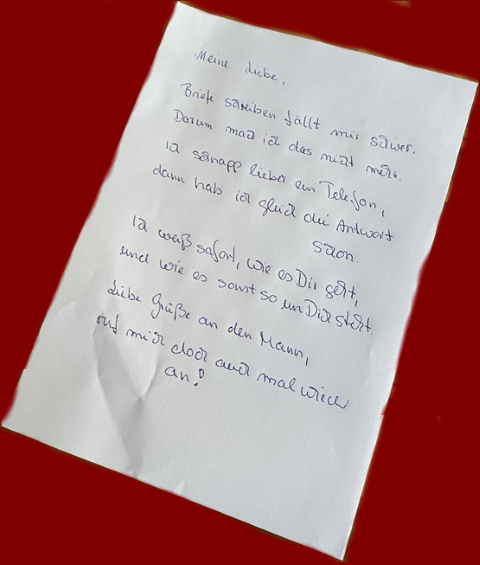 Meine Liebe,
Briefe schreiben fällt mir schwer.
Darum mach ich das nicht mehr.
Ich schnapp lieber ein Telefon,
dann hab ich gleich die Antwort
schon.
Ich weiß sofort, wie es Dir geht,
und wie es sonst so um Dich steht.
Liebe Grüße an den Mann,
ruf mich doch auch mal wieder
an!